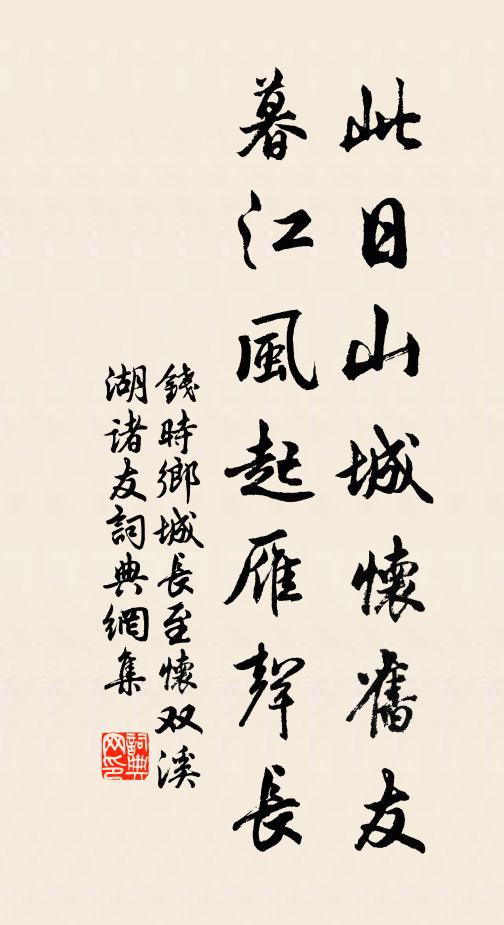 此日山城懷舊友
暮江風起雁聲長
錢時鄉城長至懷双溪
湖诸友詞典網集
詞典
网印